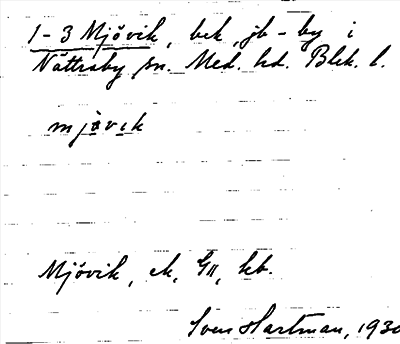 1-3 Mjövik, bek, jb-by i
Nättraby sn. Med. hd. Blek. l.
mjövik
Mjövik, ek, G11, kb.
Sven Hartman, 1930